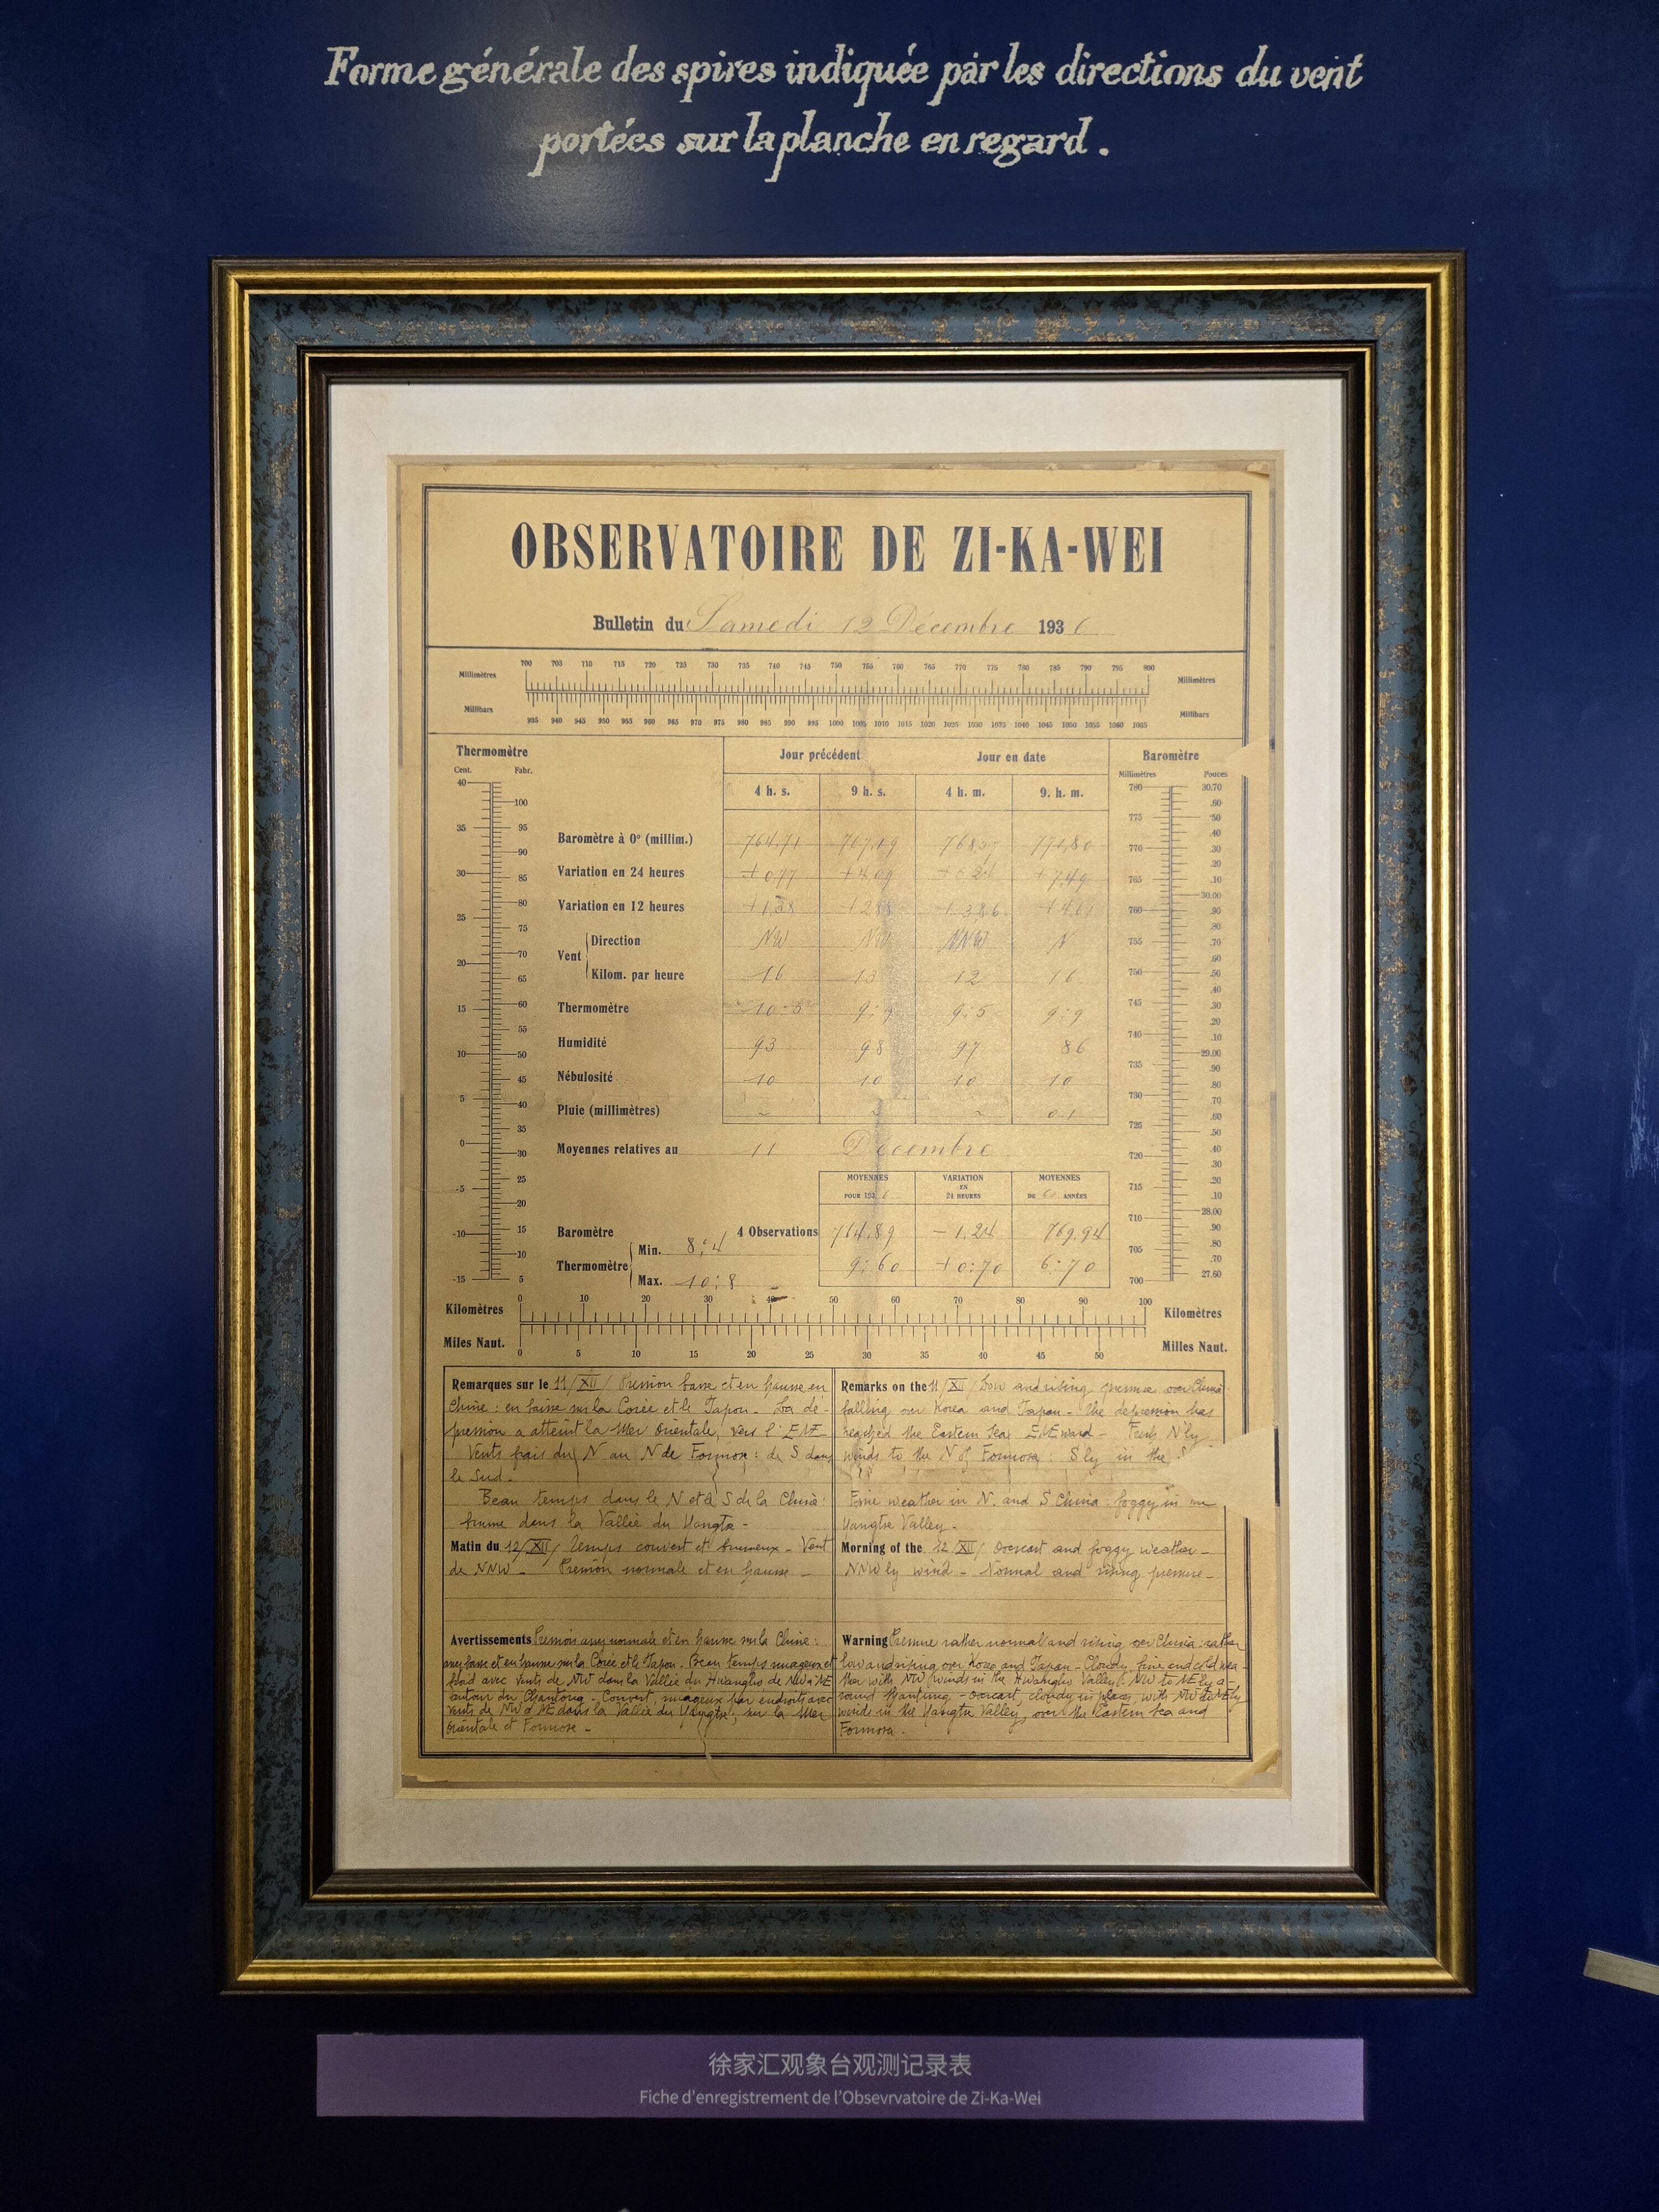 Forme générale des spires indiquée par les directions du vent
portées sur la planche en regard .
OBSERVATOIRE DE ZI-KA-WEI
Bulletin du Samedi 12 Décembre 1936
700 705 710 715 720 725 730 735 740 745 750 755 760 765 770 775 780 785 790 795 800
Millimètres Millimètres
Millibars Millibars
935 940 945 950 955 960 965 970 975 980 985 990 995 1000 1005 1010 1015 1020 1025 1030 1035 1040 1045 1050 1055 1060 1065
Thermomètre Jour précédent Jour en date Baromètre
Cent. Fahr. Millimètres Pouces
4 h. s. 9 h. s. 4 h. m. 9. h. m.
Baromètre à 0° (millim.) 764,71 767,19
Variation en 24 heures +0,77 +7,49
Variation en 12 heures +1,38 +3,86
Vent
Direction NW NW NNW N
Kilom. par heure 16 13 12 16
Thermomètre 9:9 9:5 9:9
Humidité 93 98 97 86
Nébulosité 10 10 10 10
Pluie (millimètres) ~ ~ ~ 0.1
Moyennes relatives au 11 Décembre
MOYENNES VARIATION MOYENNES
POUR 1936 EN DE ANNÉES
24 HEURES
Baromètre 4 Observations 764,89 - 1,24 769,94
Thermomètre Min. 8:4 9:60 +0:70 6:70
Max. 10:8
40 35 30 25 20 15 10 5 0 -5 -10 -15
100 95 90 85 80 75 70 65 60 55 50 45 40 35 30 25 20 15 10 5
780 775 770 765 760 755 750 745 740 735 730 725 720 715 710 705 700
30.70 .60 .50 .40 .30 .20 .10 30.00 .90 .80 .70 .60 .50 .40 .30 .20 .10 29.00 .90 .80 .70 .60 .50 .40 .30 .20 .10 28.00 .90 .80 .70 27.60
0 10 20 30 40 50 60 70 80 90 100
Kilomètres Kilomètres
Miles Naut. Milles Naut.
0 5 10 15 20 25 30 35 40 45 50
Remarques sur le 11/XII/ Pression basse et en hausse en
Chine : en baisse sur la Corée et le Japon - La dé-
pression a atteint la Mer Orientale, vers l'ENE
Vents frais du N au N de Formose : de S dans
le Sud -
Beau temps dans le N et le S de la Chine :
brume dans la Vallée du Yangtse -
Matin du 12/XII/ Temps couvert et brumeux - Vent
de NNW - Pression normale et en hausse -
Avertissements Pression assez normale et en hausse sur la Chine :
assez basse et en hausse sur la Corée et le Japon - Beau temps nuageux et
froid avec vents de NW dans la Vallée du Hwangho de NW à NE
autour du Chantong - Couvert, nuageux par endroits avec
vents de NW à NE dans la Vallée du Yangtse, sur la Mer
Orientale et Formose -
Remarks on the 11/XII/ Low and rising pressure over China :
falling over Korea and Japan - The depression has
reached the Eastern Sea ENEward - Fresh N'ly
winds to the N of Formosa : S'ly in the S
Fine weather in N. and S China : foggy in
Yangtse Valley -
Morning of the 12/XII/ Overcast and foggy weather -
NNW'ly wind - Normal and rising pressure -
Warning Pressure rather normal and rising over China : rather
low and rising over Korea and Japan - Cloudy, fine and cold wea-
ther with NW winds in the Hwangho Valley : NW to NE'ly a-
round Shantung - overcast, cloudy in places, with NW to NE'ly
winds in the Yangtse Valley, over the Eastern Sea and
Formosa -
徐家汇观象台观测记录表
Fiche d'enregistrement de l'Obsevrvatoire de Zi-Ka-Wei